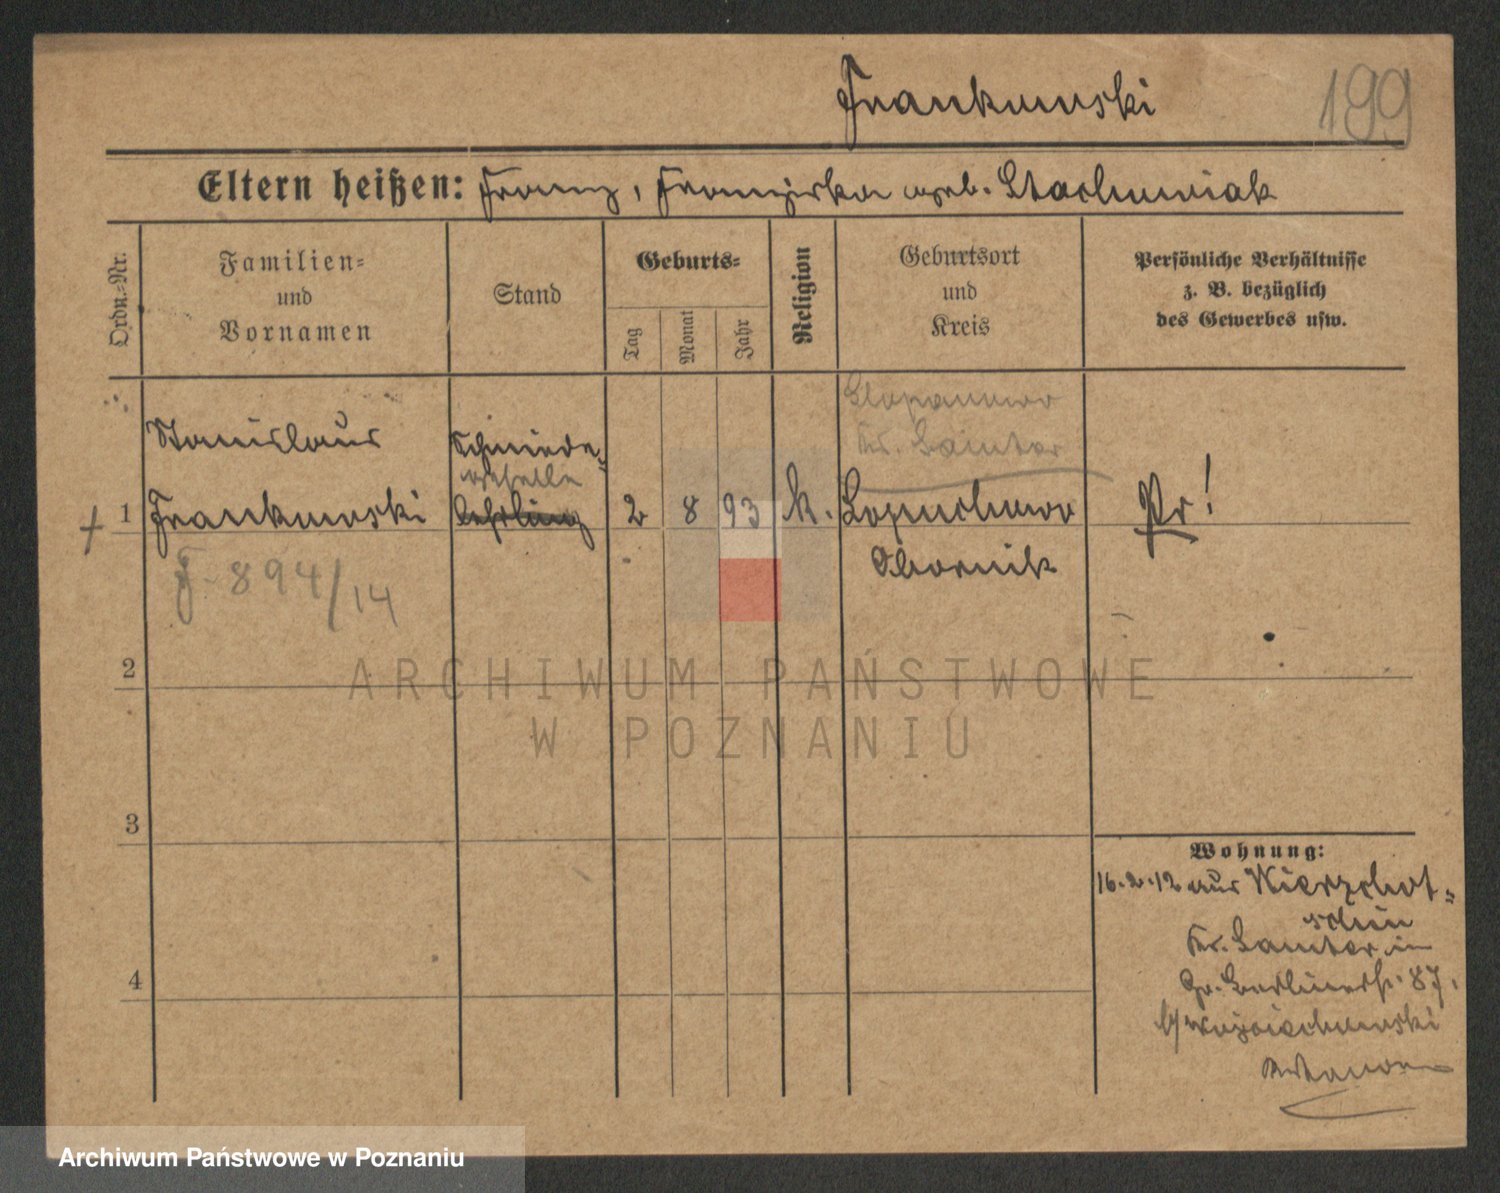 Frankowski 199
Eltern heißen: Franz, Franziska geb. Stachowiak
Ordn.-Nr.
Familien-
und
Vornamen
Stand
Geburts-
Tag
Monat
Jahr
Religion
Geburtsort
und
Kreis
Persönliche Verhältnisse
z. B. bezüglich
des Gewerbes usw.
Stanislaus
Schmiede-
geselle
Slopanowo
Kr. Samter
+ 1 Frankowski Lehrling 2 8 93 k. Lopuchowo Pr!
Obornik
F. 894/14
2
ARCHIWUM PAŃSTWOWE
W POZNANIU
3
Wohnung:
16.2.12 aus
Kr. Samter in
Gr. Berlinerstr. 87.
b/ Wojciechowski
4
Archiwum Państwowe w Poznaniu